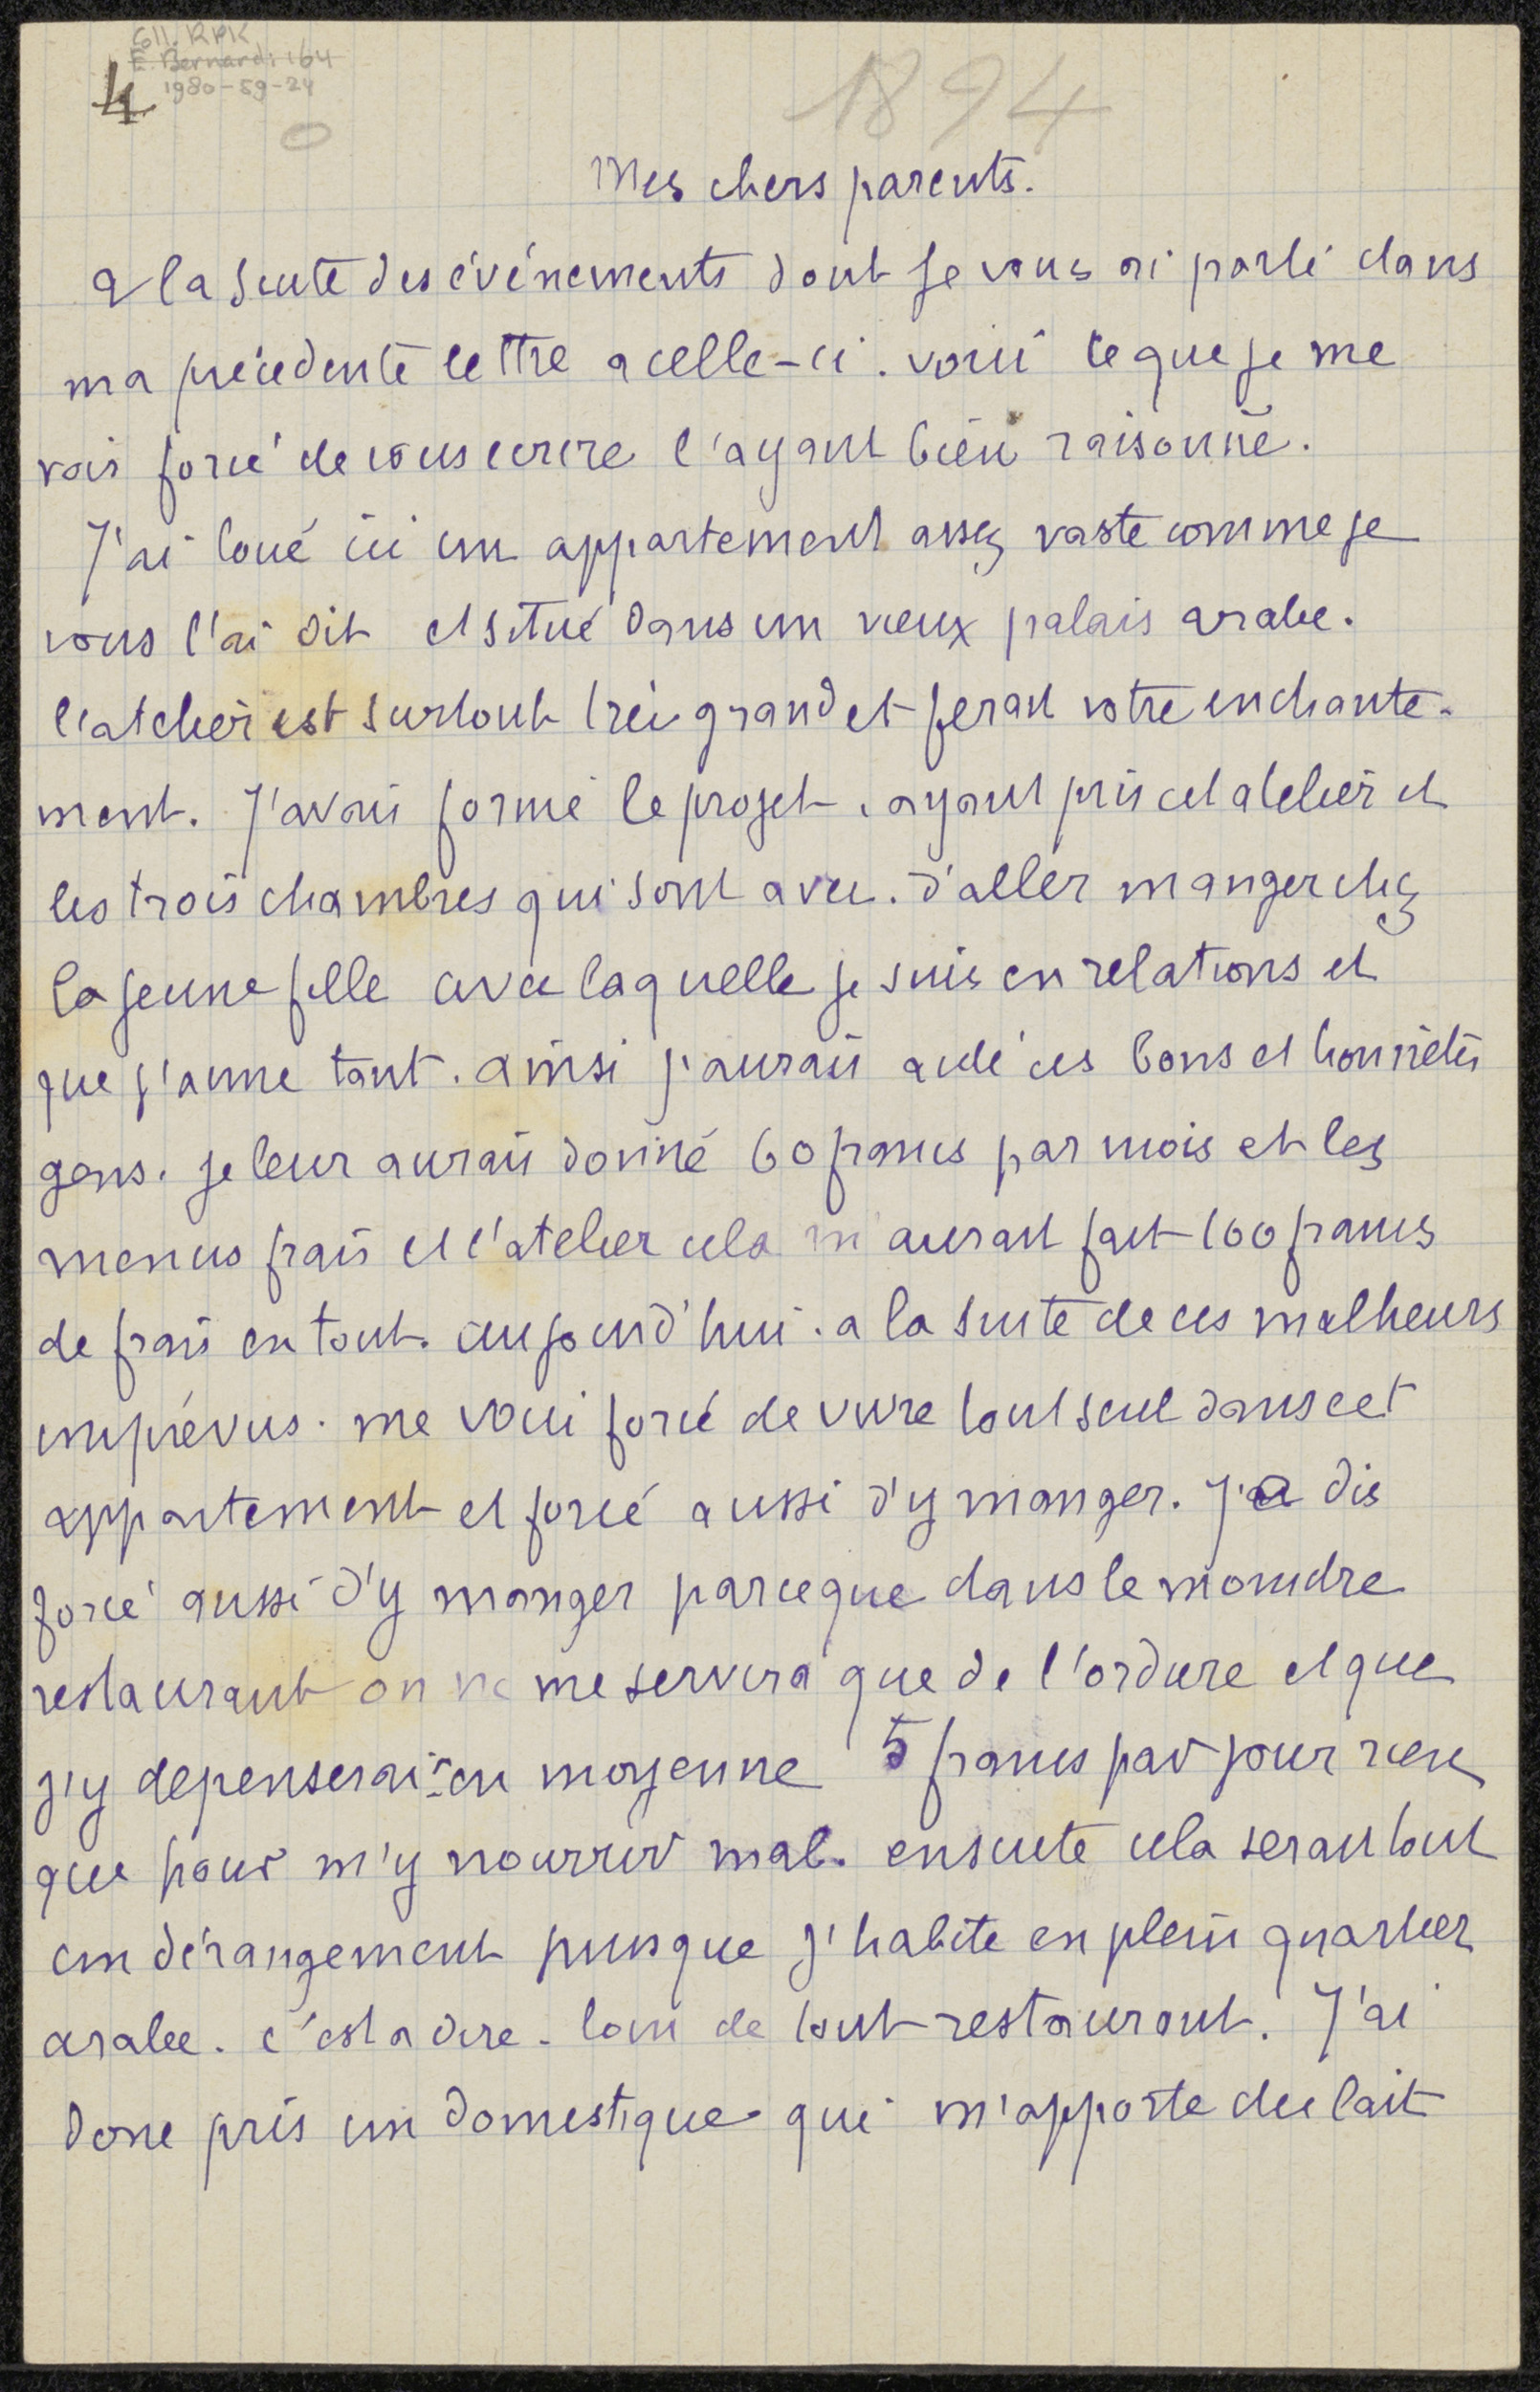 Coll. RPK
E. Bernard: 164
1980-59-24
4
1894
Mes chers parents.
a la suite des événements dont je vous ai parlé dans
ma précedente lettre a celle-ci. voici ce que je me
vois forcé de vous ecrire l'ayant bien raisonné.
J'ai loué ici un appartement assez vaste comme je
vous l'ai dit et situé dans un vieux palais arabe.
l'atelier est surtout très grand et ferait votre enchante-
ment. J'avais formé le projet, ayant pris cet atelier et
les trois chambres qui sont avec. d'aller manger chez
la jeune fille avec laquelle je suis en relations et
que j'aime tant. ainsi j'aurais aidé ces bons et honnêtes
gens. je leur aurais donné 60 francs par mois et les
menus frais et l'atelier cela m'aurait fait 100 francs
de frais en tout. aujourd'hui. a la suite de ces malheurs
imprévus. me voici forcé de vivre tout seul dans cet
appartement et forcé aussi d'y manger. je dis
forcé aussi d'y manger parceque dans le moindre
restaurant on ne me servira que de l'ordure et que
j'y depenserais en moyenne 5 francs par jour rien
que pour m'y nourrir mal. ensuite cela serait tout
un dérangement puisque j'habite en plein quartier
arabe. c'est a dire. loin de tout restaurant. J'ai
donc pris un domestique qui m'apporte du lait